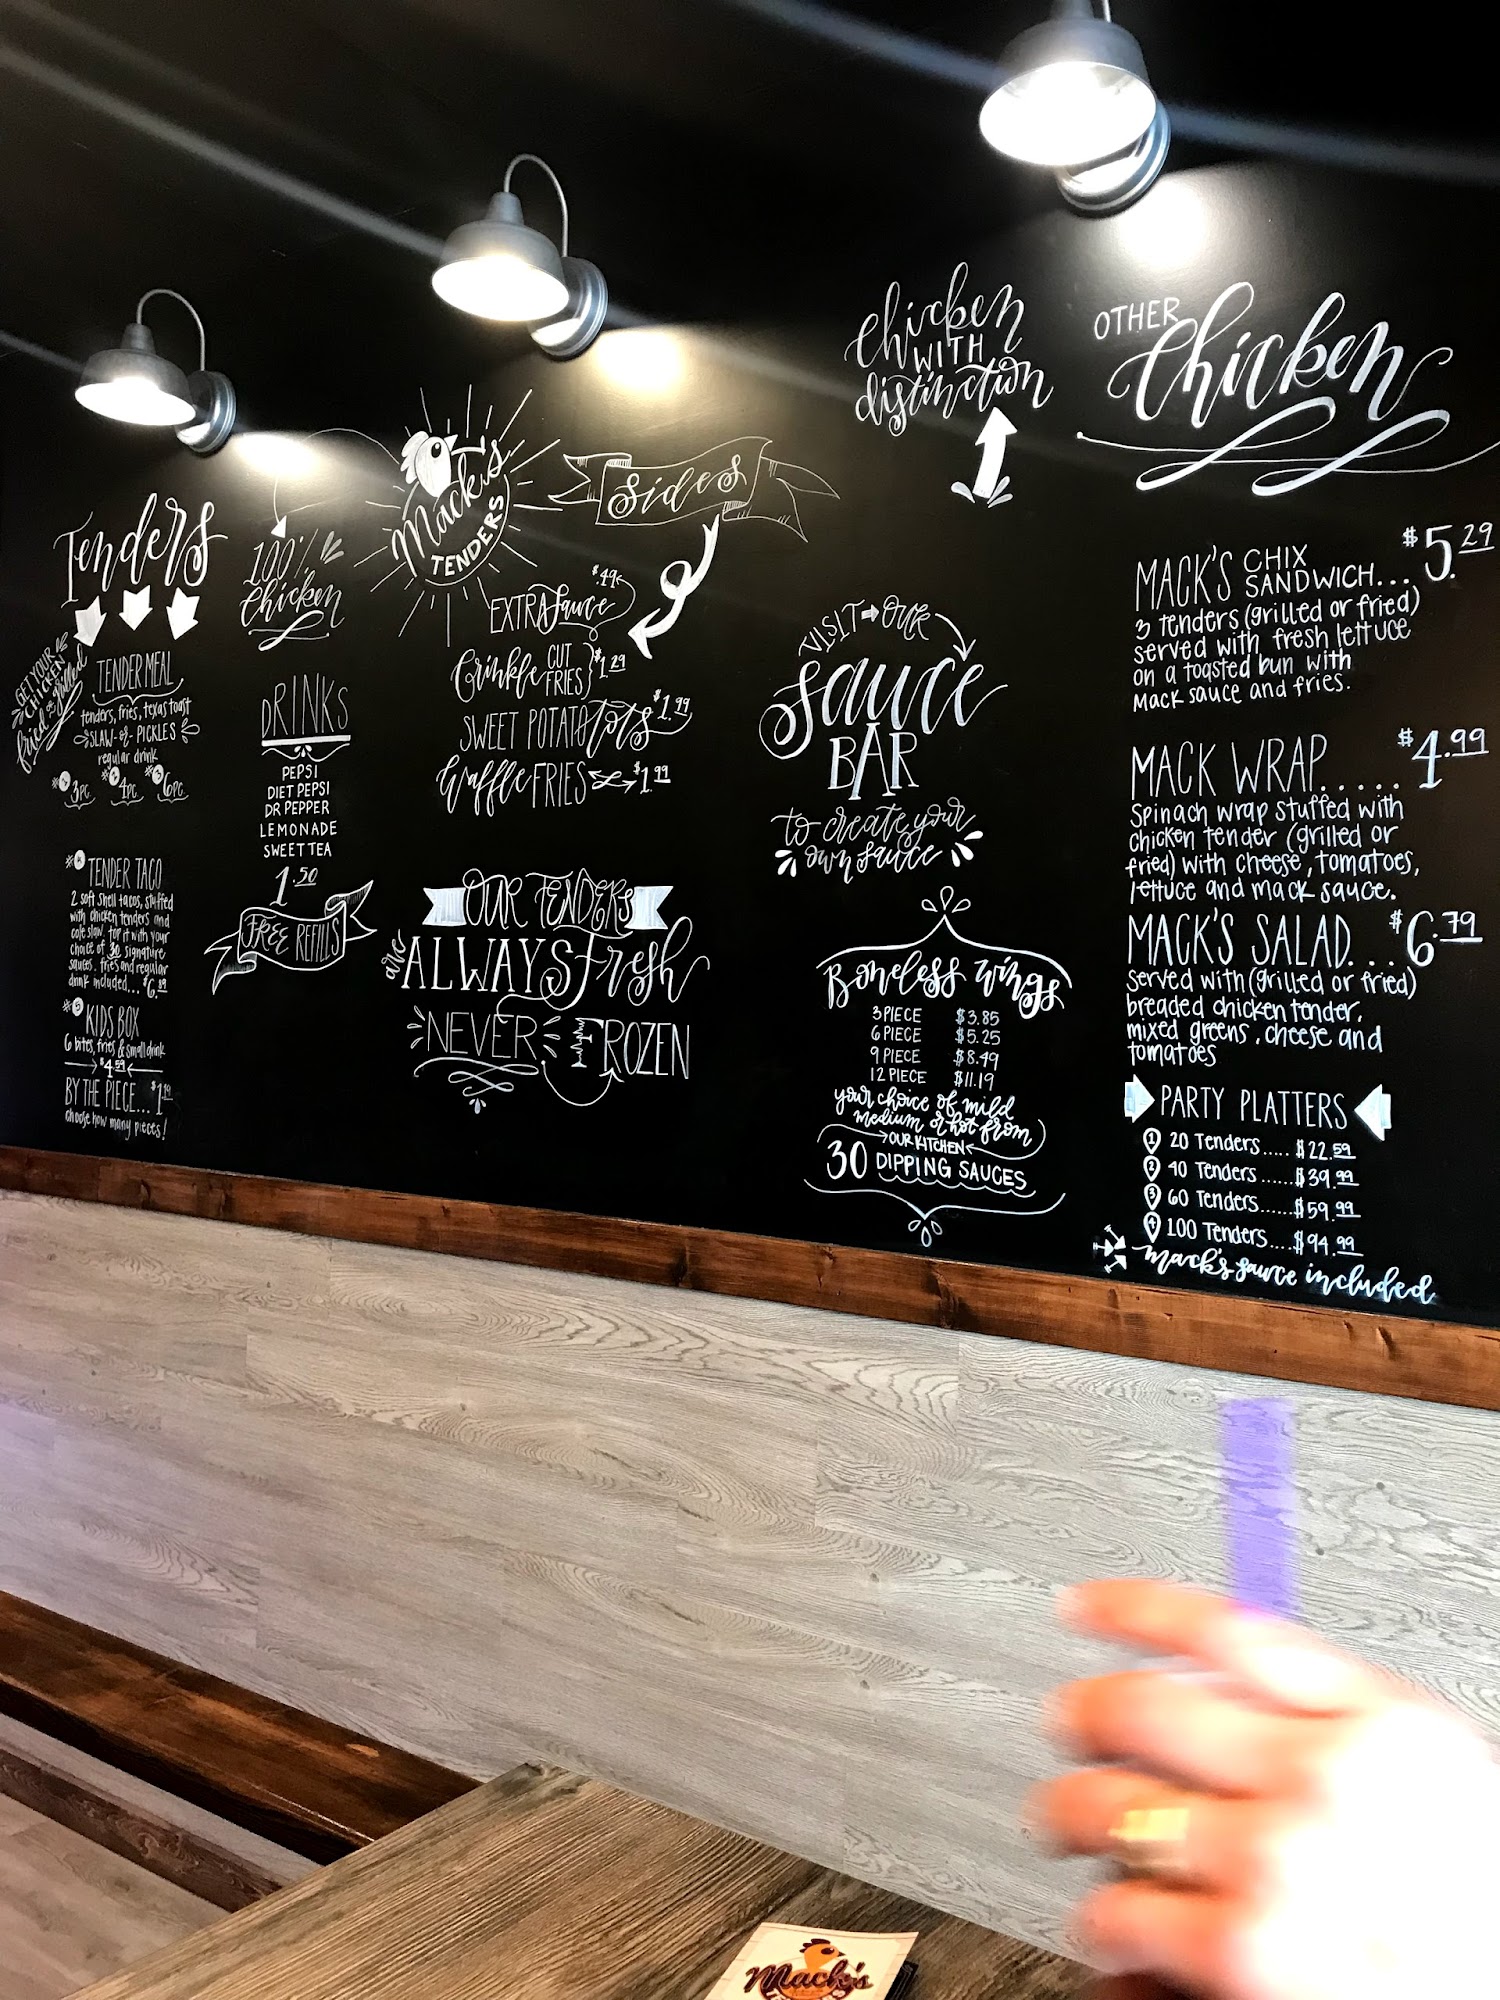 Tenders
GET YOUR
CHICKEN
fried or grilled
TENDER MEAL
tenders, fries, texas toast
SLAW -or- PICKLES
regular drink
#1 3pc. #2 4pc. #3 6pc.
#4
TENDER TACO
2 soft shell tacos, stuffed
with chicken tenders and
cole slaw. top it with your
choice of 30 signature
sauces. fries and regular
drink included... $6.89
#5
KIDS BOX
6 bites, fries & small drink
$4.59
BY THE PIECE...
choose how many pieces!
100%
Chicken
DRINKS
PEPSI
DIET PEPSI
DR PEPPER
LEMONADE
SWEET TEA
1.50
FREE REFILLS
Mack's
TENDERS
Sides
EXTRA Sauce $.49
Crinkle CUT FRIES $1.29
SWEET POTATO tots $1.99
Waffle FRIES $1.99
OUR TENDERS
are ALWAYS fresh
NEVER FROZEN
Chicken
WITH
distinction
VISIT OUR
Sauce
BAR
to create your
own sauce
Boneless Wings
3 PIECE $3.85
6 PIECE $5.25
9 PIECE $8.49
12 PIECE $11.19
your choice of mild
medium or hot from
OUR KITCHEN
30 DIPPING SAUCES
OTHER
Chicken
MACK'S CHIX SANDWICH... $5.29
3 tenders (grilled or fried)
served with fresh lettuce
on a toasted bun with
Mack sauce and fries.
MACK WRAP..... $4.99
Spinach wrap stuffed with
chicken tender (grilled or
fried) with cheese, tomatoes,
lettuce and mack sauce.
MACK'S SALAD... $6.79
Served with (grilled or fried)
breaded chicken tender,
mixed greens, cheese and
tomatoes
PARTY PLATTERS
1 20 Tenders..... $22.59
2 40 Tenders......$39.99
3 60 Tenders......$59.99
4 100 Tenders....$94.99
Mack's sauce included
Mack's